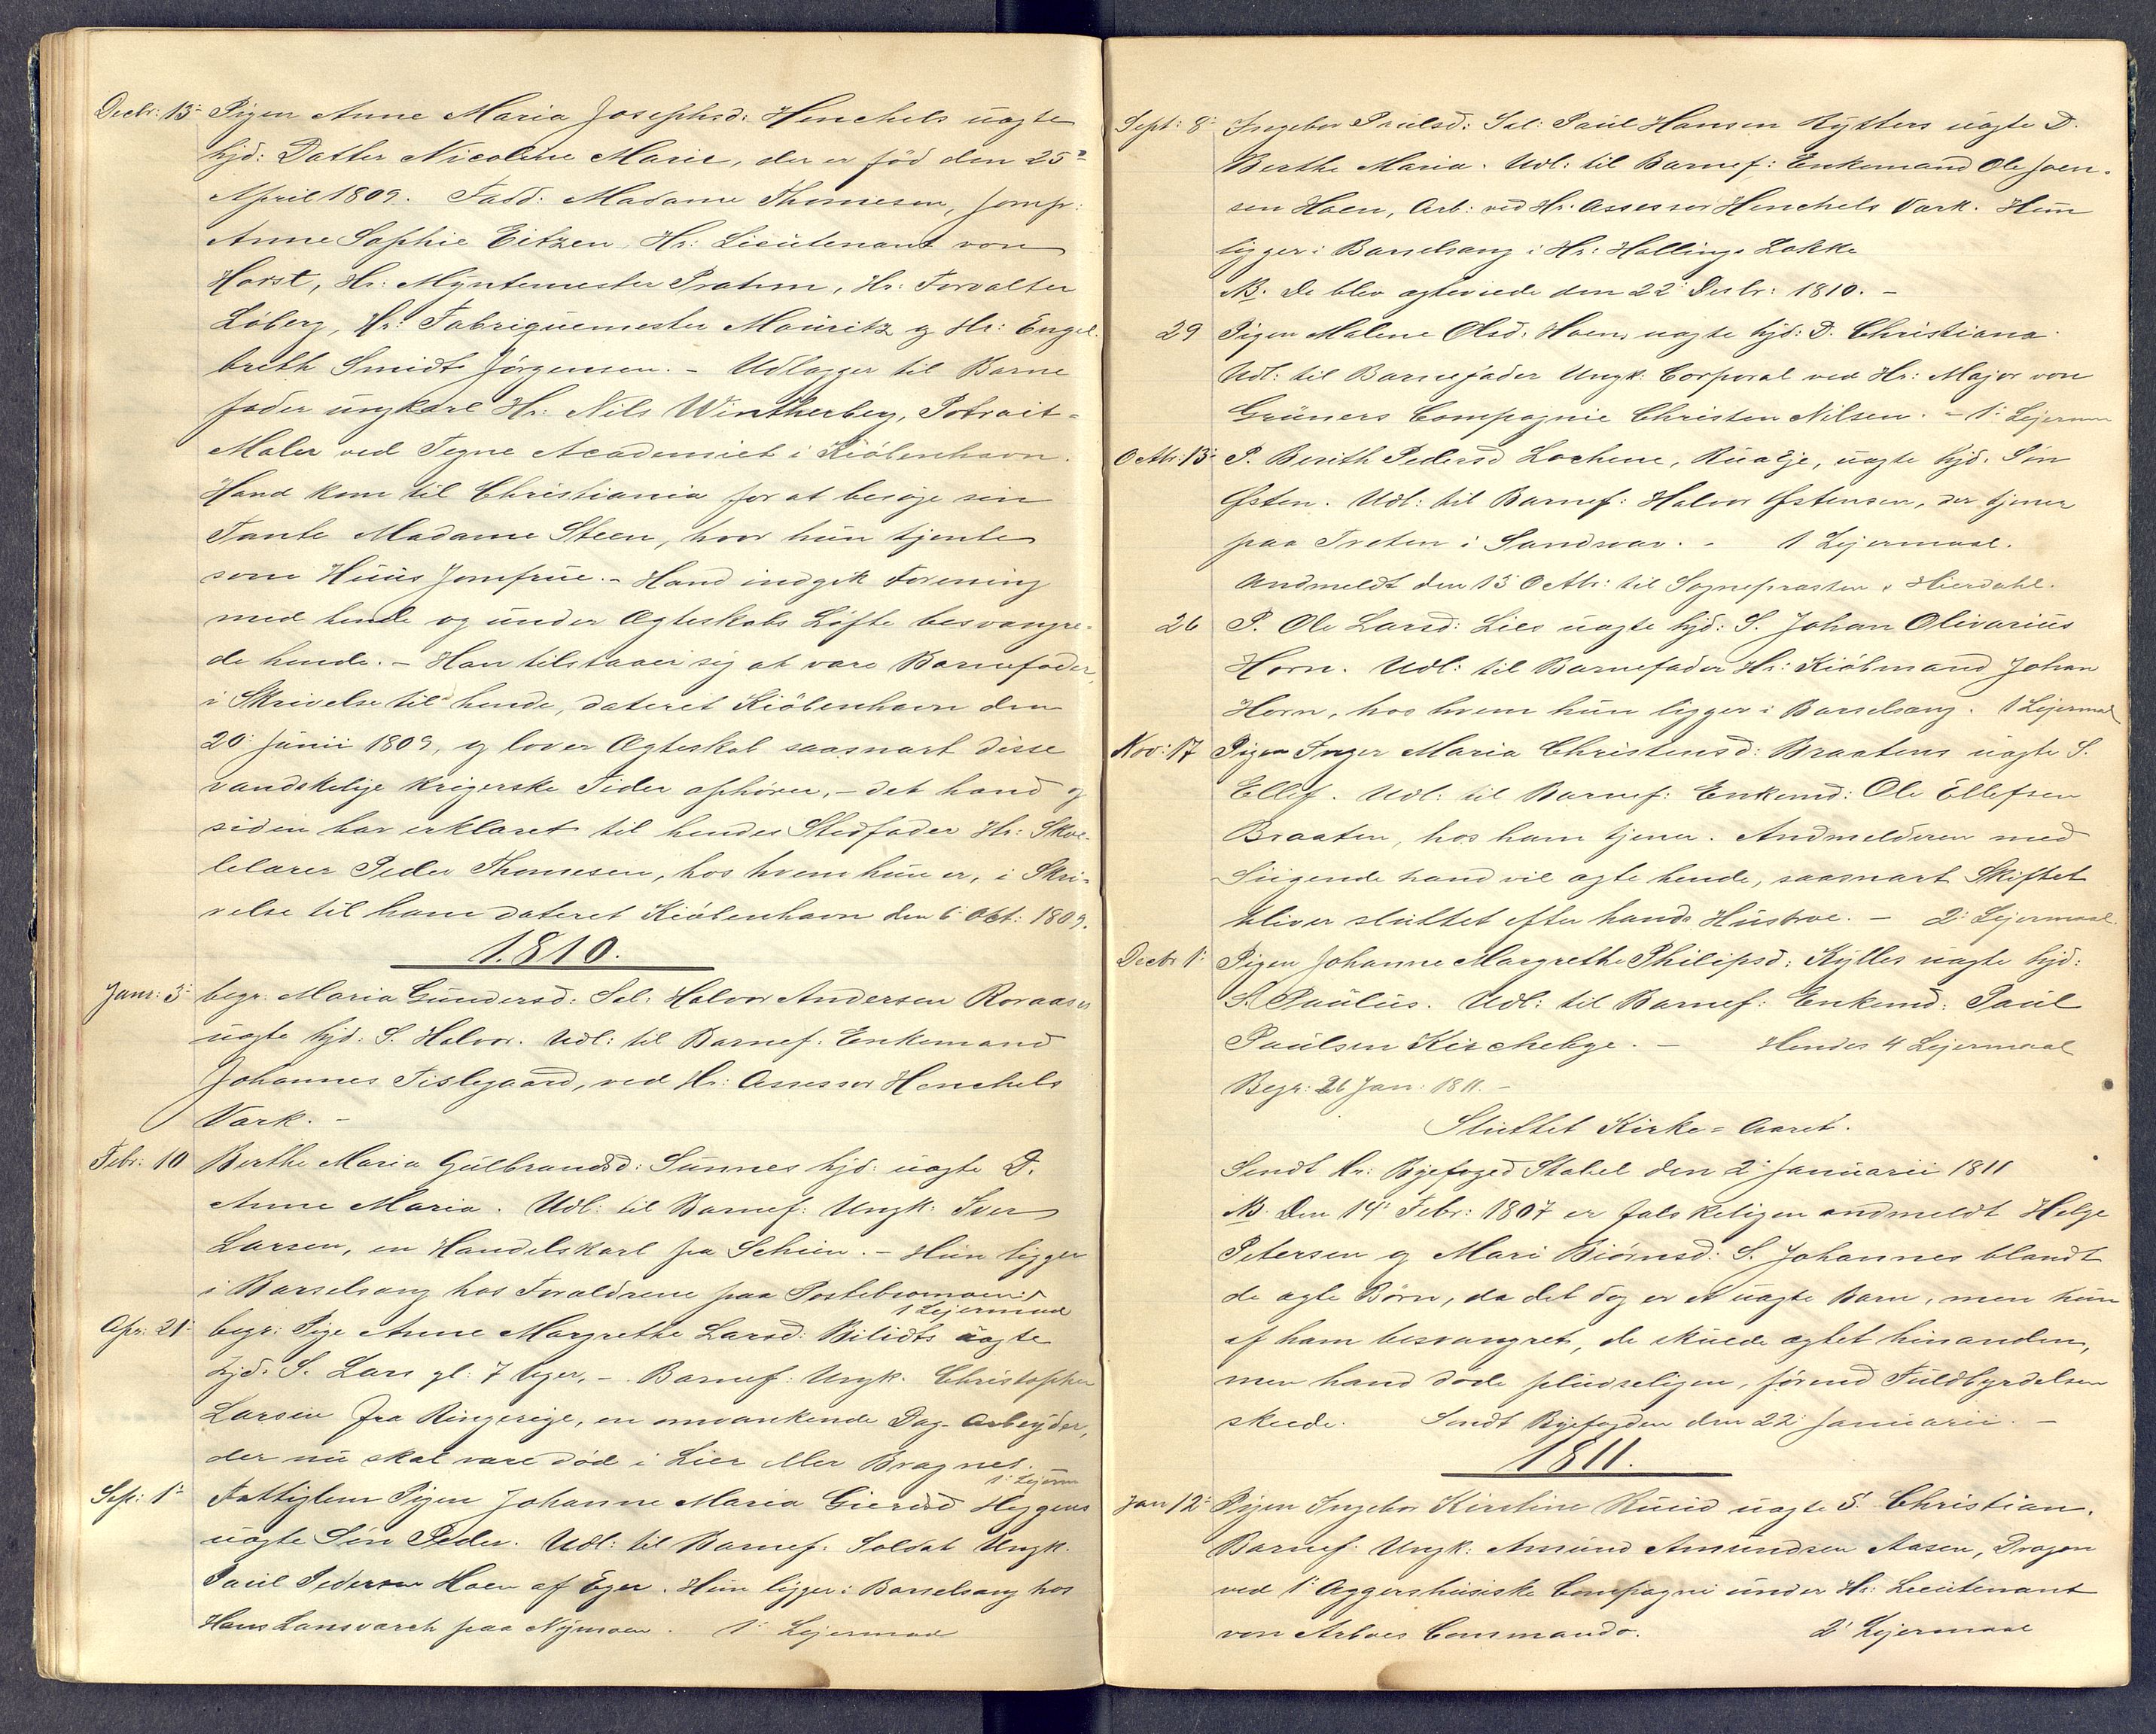 Decbr: 13: Pigen Anne Maria Josephsd: Henchels uagte
hjd: Datter Nicoline Marie, der er föd den 25:
April 1809. Fadd: Madame Thomesen, Jomfr:
Anne Sophie Eitzen, Hr: Lieutenant von
Horst, Hr: Myntemester Prahm, Hr: Forvalter
Löberg, Hr: Fabriquemester Mauritz og Hr: Engel-
breth Smidt Jörgensen. - Udlagger til Barne
fader ungkarl Hr: Nils Wintherberg, Potrait-
Maler ved Tegne Academiet i Kiöbenhavn.
Hand kom til Christiania for at besöge sin
Tante Madame Steen, hvor hun tjente
som Huus Jomfrue. - Hand indgik Forening
med hende og under Ægteskabs Löfte besvangre-
de hende. - Han tilstaaer sig at vare Barnefader,
i Skrivelse til hende, dateret Kiöbenhavn den
20: Junii 1809, og lover Ægteskab saasnart disse
vandskelige krigerske Tider ophörer, - det hand og
siden har erklaret til hendes Stedfader Hr: Skoe-
lelarer Peder Thomesen, hos hvem hun er, i Skri-
velse til ham dateret Kiöbenhavn den 6: Obt: 1809.
1810.
Janr: 3: begr: Maria Gundersd: Sal: Halvor Andersen Roraases
uagte hjd: S. Halvor. Udl: til Barnef: Enkemand
Johannes Fislegaard, ved Hr: Assessor Henchels
Vark. -
Febr: 10 Berthe Maria Gulbrandsd: Sunnes hjd: uagte D.
Anne Maria. Udl: til Barnef: Ungk: Iver
Larsen, en Handelskarl fra Schien. - Hun ligger
i Barselsang hos Foraldrene paa Postebromoen
1 Lejermaal
Apr: 21: begr: Pige Anne Margrethe Larsd: Bilidts uagte
hjd. S. Lars gl: 7 Uger. - Barnef: Ungk. Christopher
Larsen fra Ringerige, en omvankende Dag-Arbeyder,
der nu skal vare död i Lier eller Bragnes.
1: Lejerm
Sept: 1: Fattiglem Pigen Johanne Maria Gierdsd Heggens
uagte Sön Peder. Udl: til Barnef. Soldat Ungk.
Paul Pedersen Hoen af Eger. Hun ligger i Barselsang hos
Hans Lansvarch paa Nymoen. 1: Lejermaal
Sept: 8: Ingebor Paulsd: Sal: Paul Hansen Rytters uagte D.
Berthe Maria. Udl: til Barnef: Enkemand Ole Joen-
sen Hoen, Arb: ved Hr. Assessor Henchels Vark. Hun
ligger i Barselsang i Hr: Hallings Lökke
NB. De blev ægteviede den 22: Decbr: 1810. -
29 Pigen Malene Olsd: Hoens uagte hjd: D. Christiana.
Udl: til Barnefader Ungk: Corporal ved Hr: Major von
Grüners Compagnie Christen Nilsen. - 1: Lejerm
Octbr: 13: P. Berith Pedersd Lochene, Rua Eje, uagte hjd. Sön
Østen. Udl: til Barnef: Halvor Østensen, der tjener
paa Treten i Sandsvar. - 1 Lejermaal.
Andmeldt den 15 Octbr: til Sognepræsten Hierdahl.
26 P. Ole Larsd: Lies uagte hjd: S. Johan Olivarius
Horn. Udl: til Barnefader Hr: Kiöbmand Johan
Horn, hos hvem hun ligger i Barselsang. 1 Lejermal
Nov: 17 Pigen Inger Maria Christensd: Braatens uagte S.
Ellef. Udl: til Barnef: Enkemd: Ole Ellefsen
Braaten, hos ham tjener. Andmelderen med
Siigende hand vil ægte hende, saasnart Skiftet
bliver sluttet efter hands Hustroe. - 2: Lejermaal.
Decbr 1: Pigen Johanne Margrethe Philipsd: Kylles uagte hjd:
S. Paulus. Udl: til Barnef: Enkemd: Paul
Paulsen Kirchebye. - Hendes 4 Lejermaal
Begr: 26 Jan: 1811. -
Sluttet Kirke-Aaret.
Sendt Hr: Byefoged Stabel den 2: Januarii 1811
NB. Den 14: Febr: 1807 er falskeligen andmeldt Helge
Petersen og Mari Biörnsd: S. Johannes blandt
de agte Börn, da det dog er et uagte Barn, men hun
af ham besvangret, de skuede agtet hinanden,
men hand döde pludseligen, förend Fuldbyrdelsen
skede. Sendt Byefogden den 22: Januarii. -
1811.
Jan 12: Pigen Ingebor Kirstine Ruud uagte S. Christian.
Barnef: Ungk: Amund Amundsen Aasen, Dragon
ved 1: Aggershusiske Compagni under Hr: Lieutenant
von Arboes Commando. 2: Lejermaal